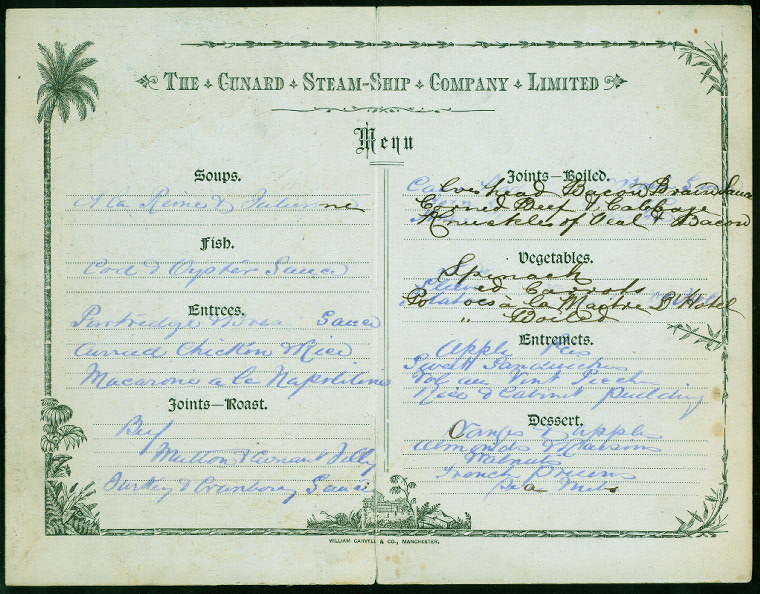 The Cunard Steam-Ship Company Limited
Menu
Soups.
A la Reine & Julienne
Fish.
Cod & Oyster Sauce
Entrees.
Partridge & Bread Sauce
Curried Chicken & Rice
Macaroni a la Napolitine
Joints—Roast.
Beef
Mutton & Currant Jelly
Turkey & Cranberry Sauce
Joints—Boiled.
Calveshead Bacon Brain Sauce
Corned Beef & Cabbage
Knuckles of Veal & Bacon
Vegetables.
Spinach
Carrots
Potatoes a la Maitre D'Hotel
" Boiled
Entremets.
Apple Pies
Swett Sandwiches
Vol au Vent
Rice & Cabinet Pudding
Dessert.
Oranges & Apples
Almonds & Raisins
Walnuts
French Prunes
Nuts
WILLIAM CARVELL & CO., MANCHESTER.